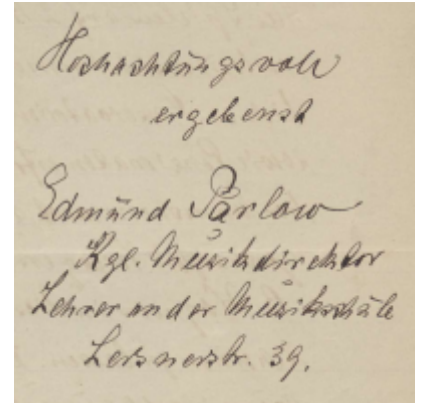 Hochachtungsvoll
ergebenst
Edmund Parlow
Kgl. Musikdirektor
Lehrer an der Musikschule
Lersnerstr. 39.